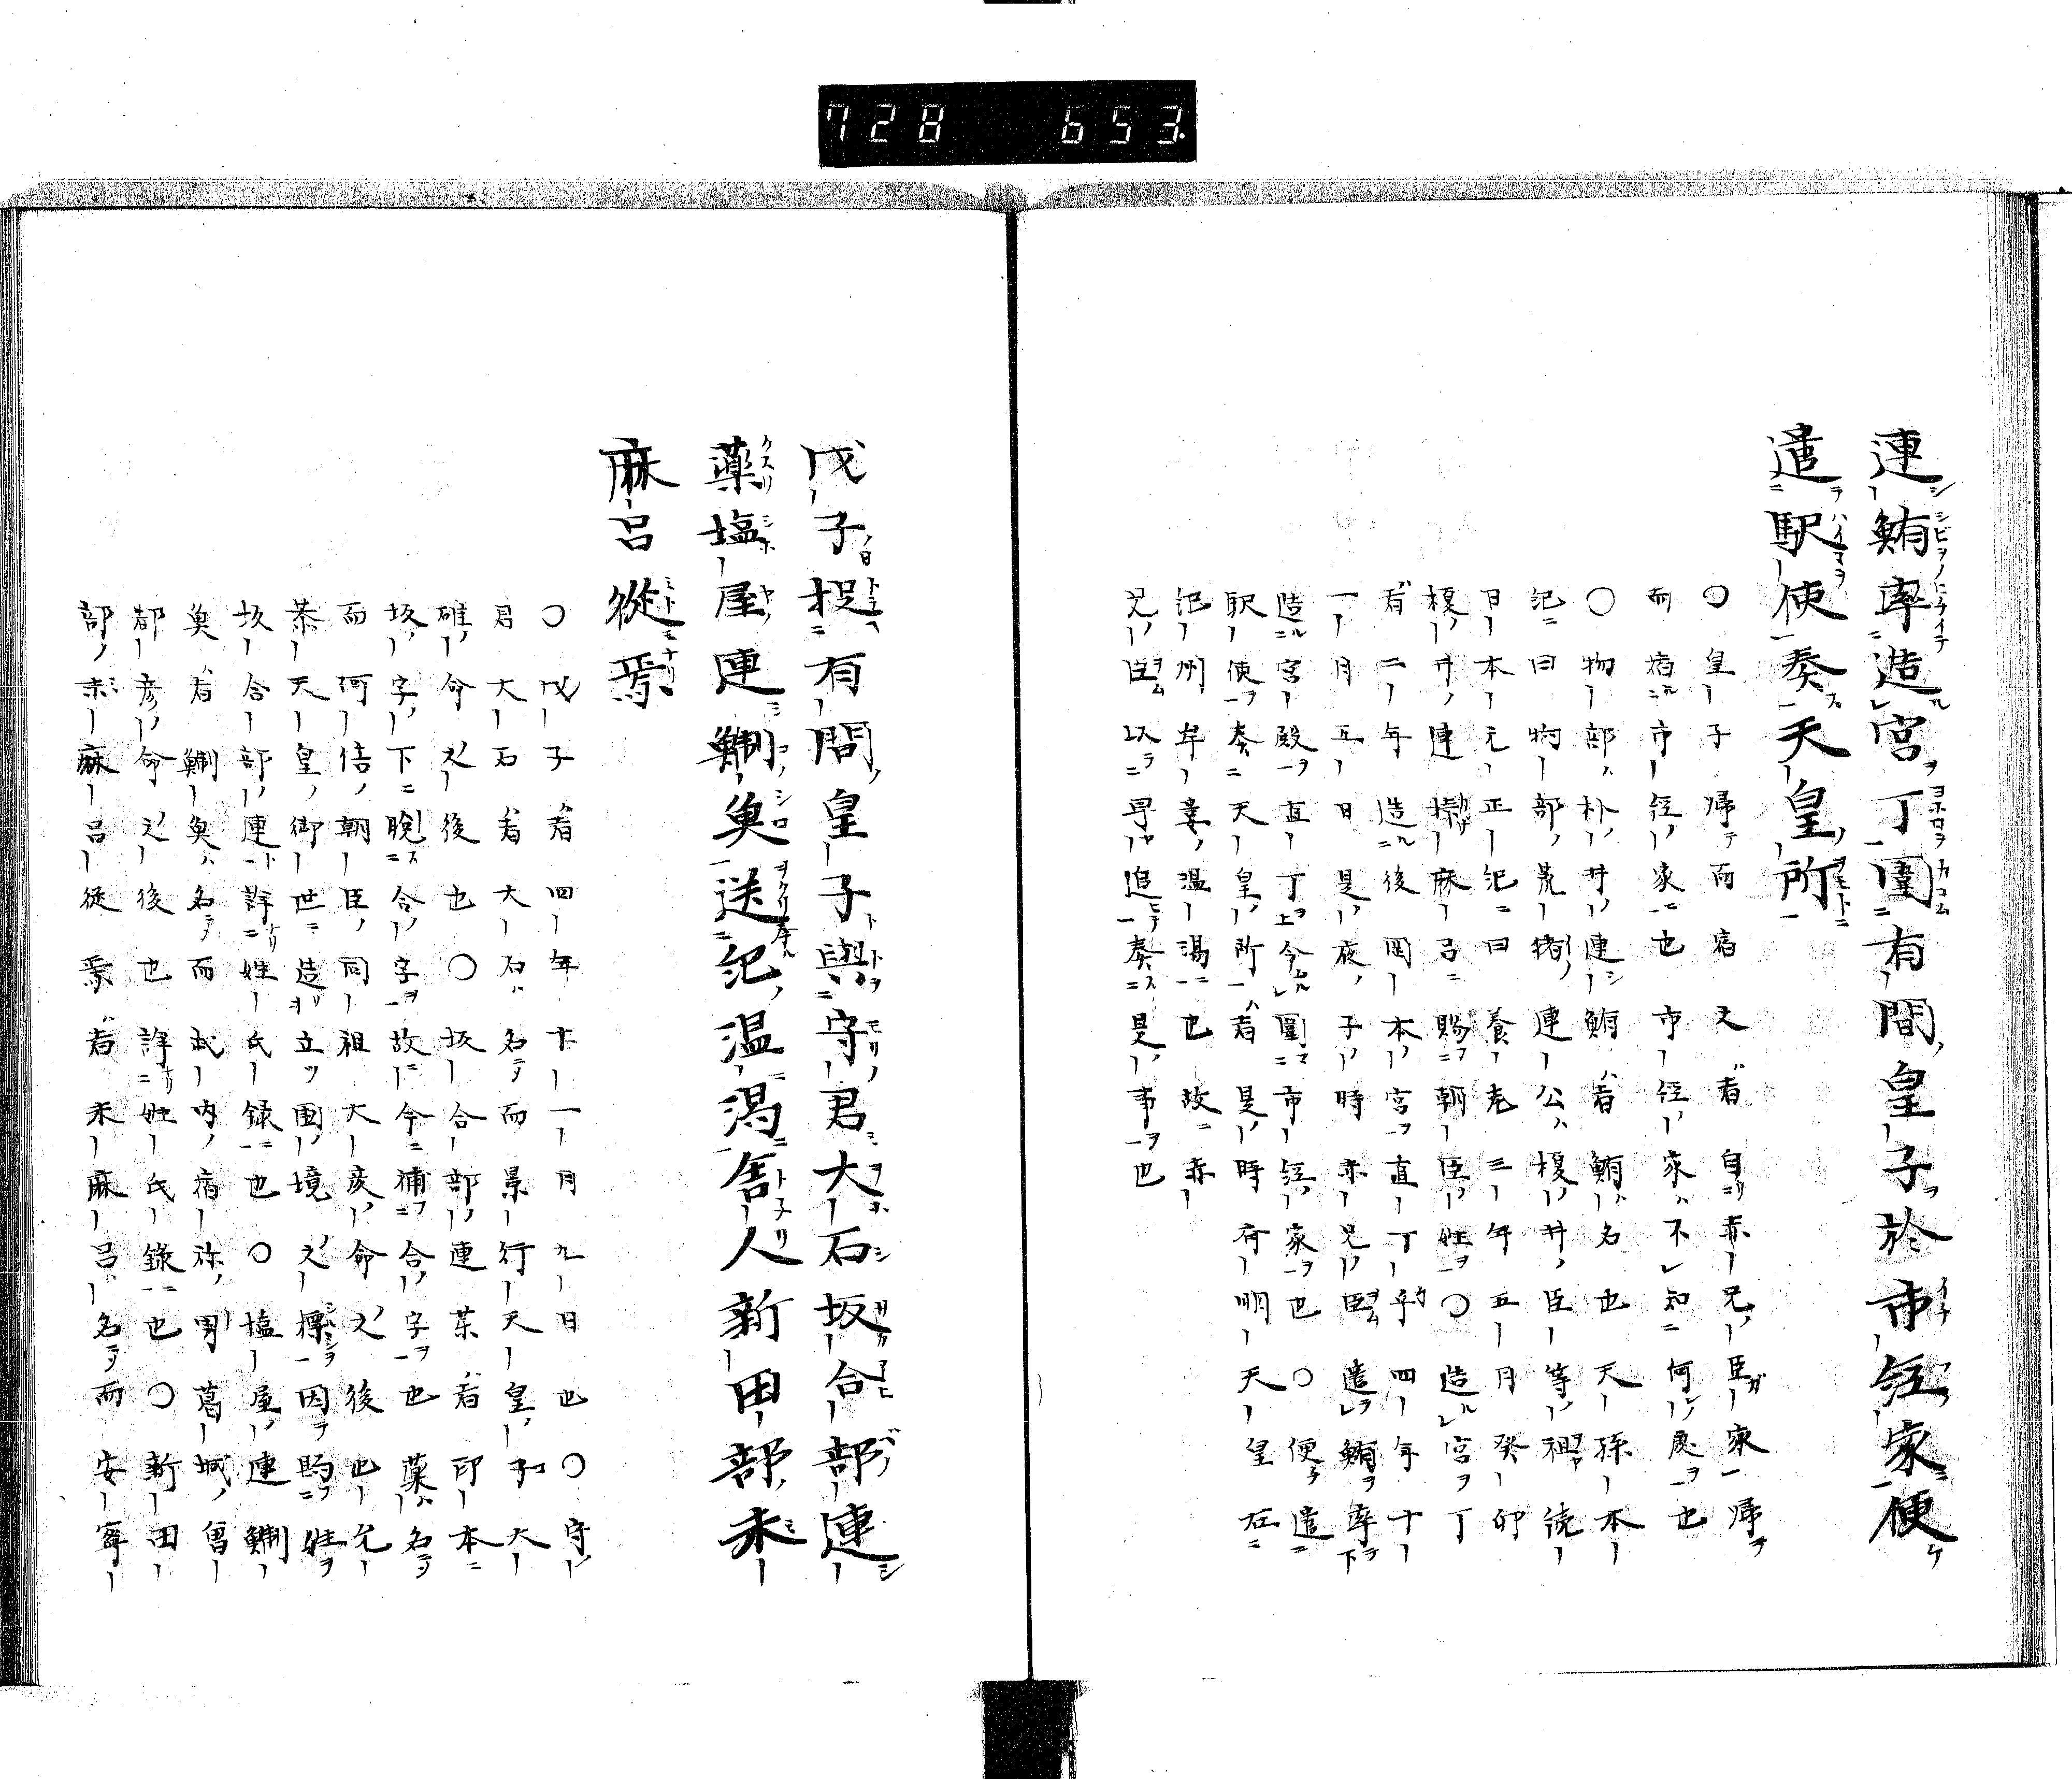 728 653
連鮪率造宮丁圍有間皇子於市経家便
遣駅使奏天皇所
〇皇子帰而宿之者自赤兄臣家帰
而宿市経家也市経家不知何處也
〇物部朴井連鮪者鮪名也天孫本
紀曰物部荒猪連公榎井臣等祖続
日本元正紀曰養老三年五月癸卯
榎井連挊麻呂賜朝臣姓〇造宮丁
者二年造後岡本宮直丁乎四年十
一月五日是夜子時赤兄臣遣鮪率
造宮殿直丁今圍市経家也〇便遣
駅使奏天皇所者是時斉明天皇在
紀州牟婁温湯也故赤
兄臣以早追奏是事也
戊子捉有間皇子與守君大石坂合部連
薬塩屋連鯯魚送紀温湯舎人新田部米
麻呂從焉
〇戊子者四年十一月九日也〇守
君大石者大石名而景行天皇子大
碓命之後也〇坂合部連薬者印本
坂字下脱合字故今補合字也薬名
而河倍朝臣同祖大彦命之後也允
恭天皇御世造立国境之標因賜姓
坂合部連詳姓氏録也〇塩屋連鯯
魚者鯯魚名而武内宿祢男葛城曽
都彦命之後也詳姓氏録也〇新田
部米麻呂従焉者米麻呂名而安寧